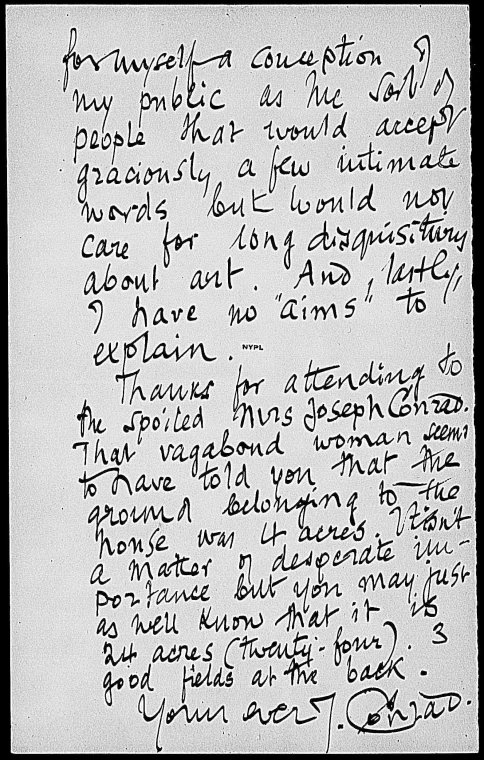 for myself a conception of
my public as the sort of
people that would accept
graciously a few intimate
words but would not
care for long disquisitions
about art. And, lastly,
I have no "aims" to
explain.
NYPL
Thanks for attending to
the spoiled Mrs Joseph Conrad.
That vagabond woman seems
to have told you that the
ground belonging to the
house was 4 acres. It isn't
a matter of desperate im-
portance but you may just
as well know that it is
24 acres (twenty-four). 3
good fields at the back.
Yours ever J. Conrad.